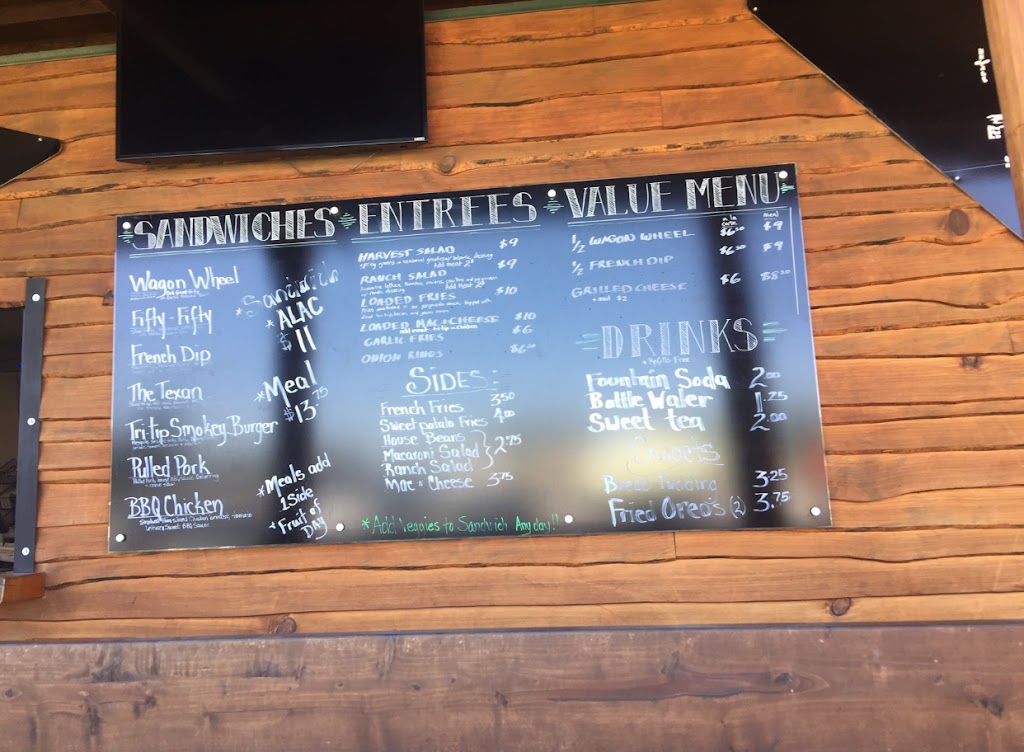 SANDWICHES
Wagon Wheel
Fifty-Fifty
French Dip
The Texan
Tri-tip Smokey Burger
Pulled Pork
BBQ Chicken
* Sandwich
* ALAC
$11
* Meal
$13.75
* Meals add
1 Side
+ Fruit of
DAY
ENTREES
HARVEST SALAD $9
Add meat
RANCH SALAD $9
Add meat
LOADED FRIES $10
LOADED MAC & CHEESE $10
GARLIC FRIES $6
ONION RINGS $6.00
SIDES:
French Fries 3.50
Sweet potato Fries 4.00
House Beans
Macaroni Salad } 2.75
Ranch Salad
Mac & Cheese 3.75
* Add Veggies to Sandwich Any day!!
VALUE MENU
à la meal
1/2 WAGON WHEEL $6.50 $9
1/2 FRENCH DIP $6.50 $9
GRILLED CHEESE $6 $8.50
DRINKS
* Refills Free
Fountain Soda 2.00
Bottle Water 1.25
Sweet tea 2.00
Sweets
Bread Pudding 3.25
Fried Oreo's (2) 3.75